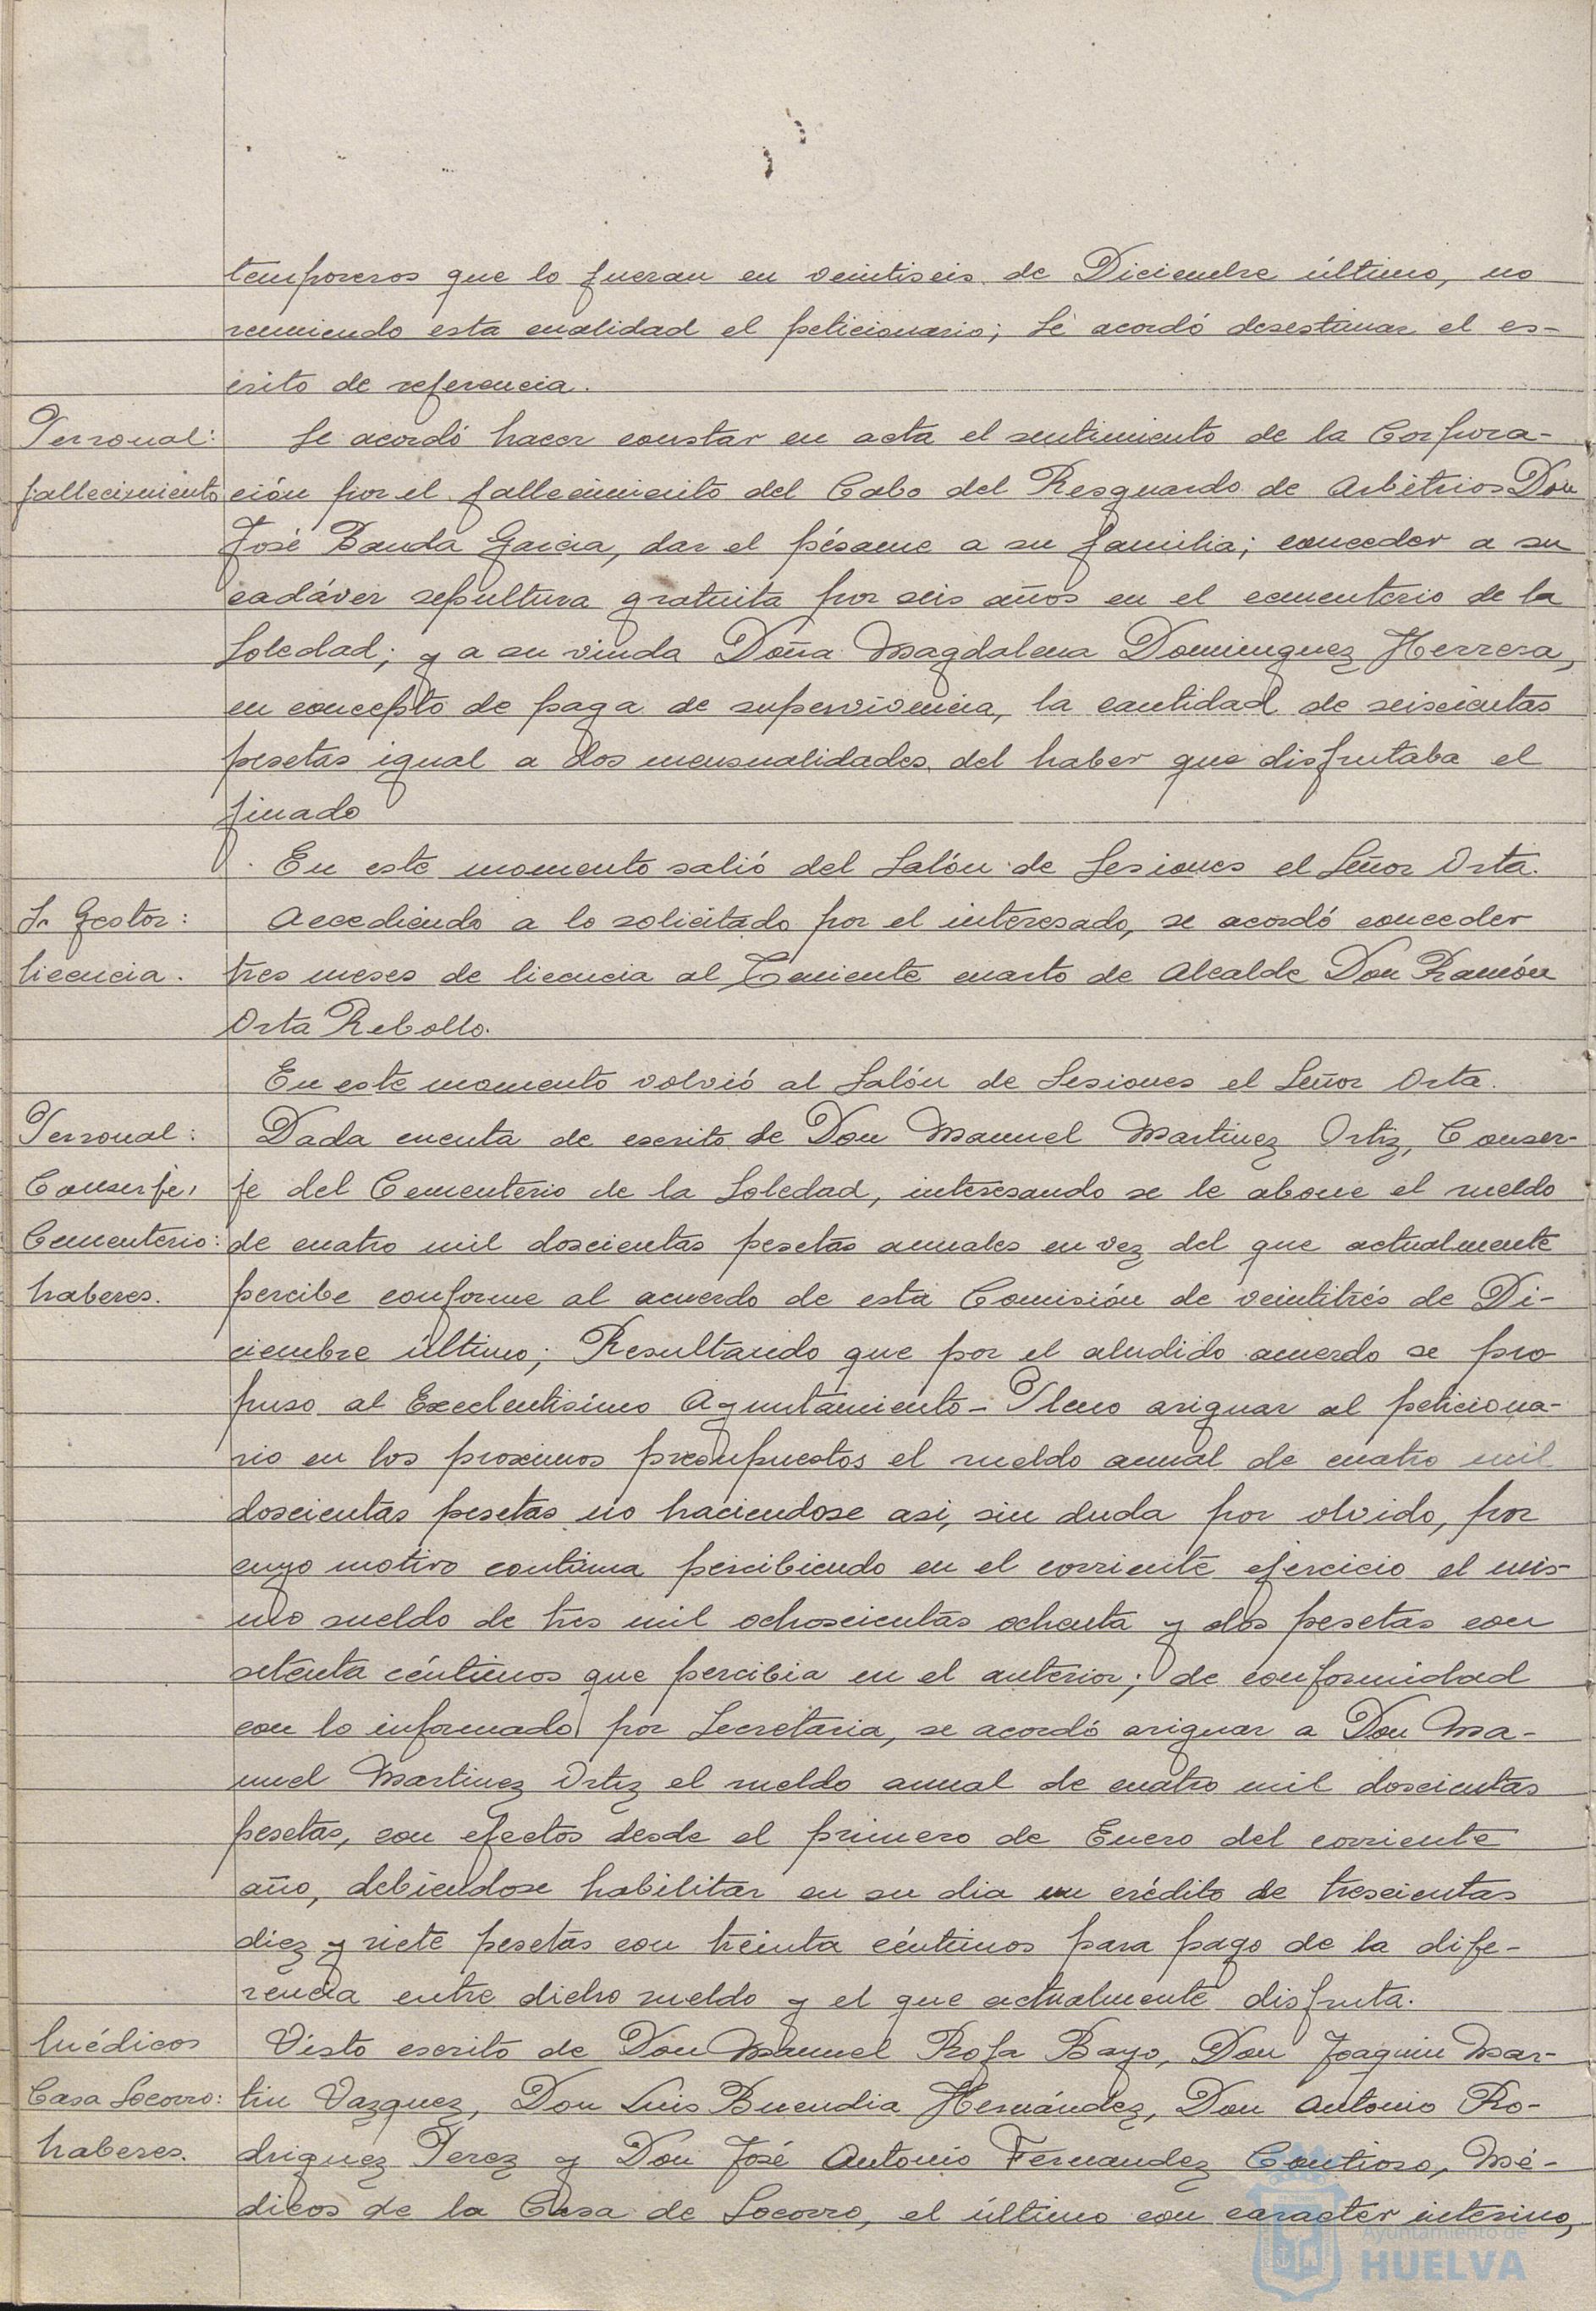 temporeros que lo fueran en veintiseis de Diciembre último, no
reuniendo esta cualidad el peticionario; Se acordó desestimar el es-
crito de referencia.
Personal: Se acordó hacer constar en acta el sentimiento de la Corpora-
fallecimiento ción por el fallecimiento del Cabo del Resguardo de Arbitrios Don
José Banda Garcia, dar el pésame a su familia; conceder a su
cadáver sepultura gratuita por seis años en el cementerio de la
Soledad; y a su viuda Doña Magdalena Dominguez Herrera,
en concepto de paga de supervivencia, la cantidad de seiscientas
pesetas igual a dos mensualidades del haber que disfrutaba el
finado
En este momento salió del Salón de Sesiones el Señor Orta.
Sr Gestor: Accediendo a lo solicitado por el interesado, se acordó conceder
licencia. tres meses de licencia al Teniente cuarto de Alcalde Don Ramón
Orta Rebollo.
En este momento volvió al Salón de Sesiones el Señor Orta.
Personal: Dada cuenta de escrito de Don Manuel Martinez Ortiz, Conser-
Conserje, je del Cementerio de la Soledad, interesando se le abone el sueldo
Cementerio: de cuatro mil doscientas pesetas anuales en vez del que actualmente
haberes. percibe conforme al acuerdo de esta Comisión de veintitrés de Di-
ciembre último; Resultando que por el aludido acuerdo se pro-
puso al Excelentísimo Ayuntamiento-Pleno asignar al peticiona-
rio en los proximos presupuestos el sueldo anual de cuatro mil
doscientas pesetas no haciendose asi, sin duda por olvido, por
cuyo motivo continua percibiendo en el corriente ejercicio el mis-
mo sueldo de tres mil ochoscientas ochenta y dos pesetas con
setenta céntimos que percibia en el anterior; de conformidad
con lo informado por Secretaria, se acordó asignar a Don Ma-
nuel Martinez Ortiz el sueldo anual de cuatro mil doscientas
pesetas, con efectos desde el primero de Enero del corriente
año, debiendose habilitar en su dia un crédito de trescientas
diez y siete pesetas con treinta céntimos para pago de la dife-
rencia entre dicho sueldo y el que actualmente disfruta.
Médicos Visto escrito de Don Manuel Rofa Bayo, Don Joaquin Mar-
Casa Socorro: tin Vazquez, Don Luis Buendia Hernández, Don Antonio Ro-
haberes. driguez Perez y Don José Antonio Fernandez Contioso, Mé-
dicos de la Casa de Socorro, el último con caracter interino,
Ayuntamiento de
HUELVA